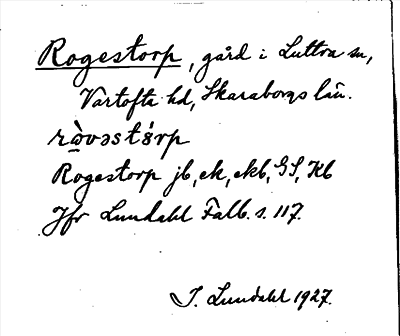 Rogestorp, gård i Luttra sn,
Vartofta hd, Skaraborgs län.
rə̀vəstɵ́rp
Rogestorp jb, ek, ekb, GS, Kb
Jfr Lundahl Falb. s. 117.
I. Lundahl 1927.